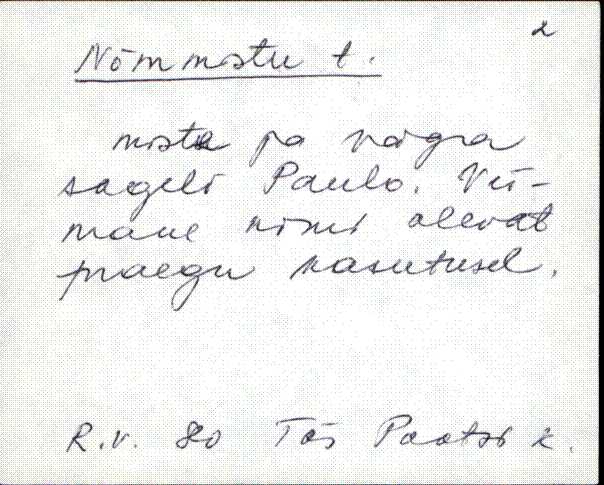 2
Nõmmistu t.
miste ja vägra
sageli Paulo. Vii-
mane nimi olevat
praegu kasutusel.
R.V. 80 Tõs Paatsi k.